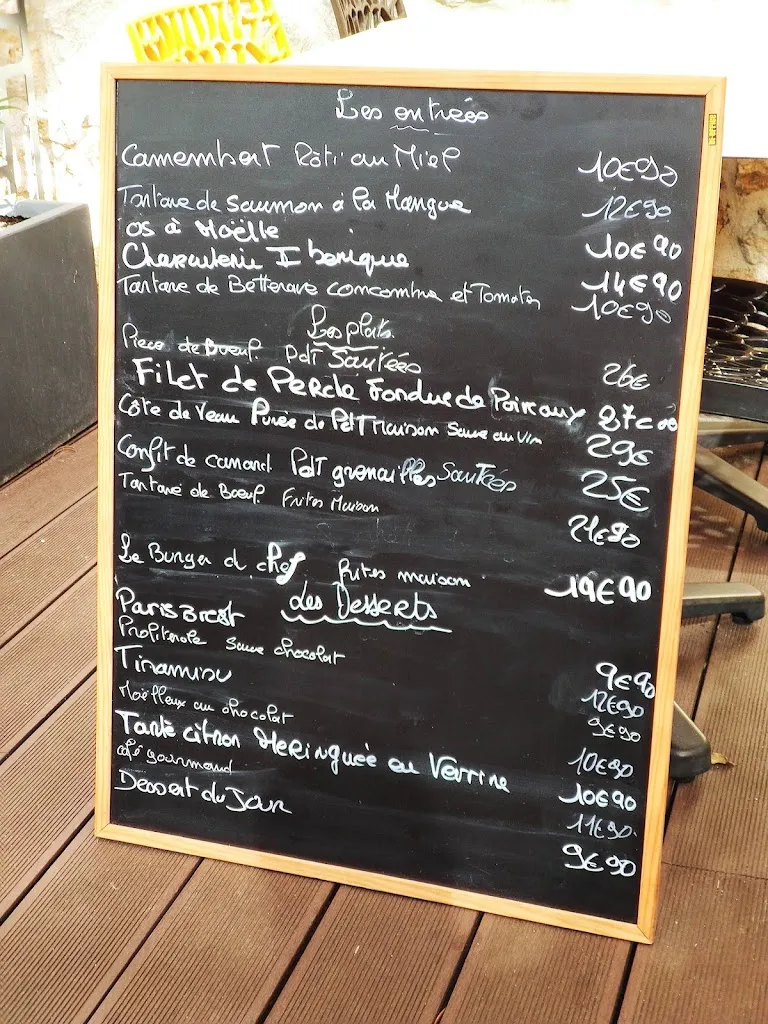 Les entrées
Camembert Rôti au Miel 10€90
Tartare de saumon à la Mangue 12€90
os à Moëlle 10€90
Charcuterie Iberique 14€90
Tartare de Betterave concombre et Tomates 10€90
Les plats
Piece de Boeuf. PdT Sautées 26€
Filet de Perche Fondue de Poireaux 27€00
Côte de Veau Purée de PdT maison Sauce au Vin 29€
Confit de canard PdT grenailles Sautées 25€
Tartare de Boeuf. Frites Maison 21€90
Le Burger d chef frites maison 19€90
Les Desserts
Paris Brest 9€90
Profiterole sauce chocolat 12€90
Tiramisu 9€90
Moëlleux au chocolat 10€90
Tarte citron Meringuée en Verrine 10€90
café gourmand 11€90
Dessert du Jour 9€90